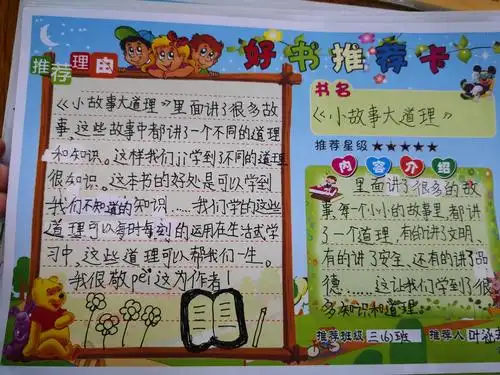 好书推荐卡
推荐理由
《小故事大道理》里面讲了很多故
事,这些故事中都讲了一个不同的道理
和知识。这样我们jì学到了不同的道理
很知识。这本书的好处是可以学到
我们不知道的知识……我们学的这些
道理可以每时每刻的运用在生活或学
习中,这些道理可以帮我们一生。
我很敬pei这为作者!
书名
《小故事大道理》
推荐星级★★★★★
内容介绍
里面讲了很多的故
事,每一个小小的故事里,都讲
了一个道理,有的讲了文明、
有的讲了安全、还有的讲了品
德……这让我们学到了很
多知识和道理。
推荐班级 三(6)班 推荐人 叶